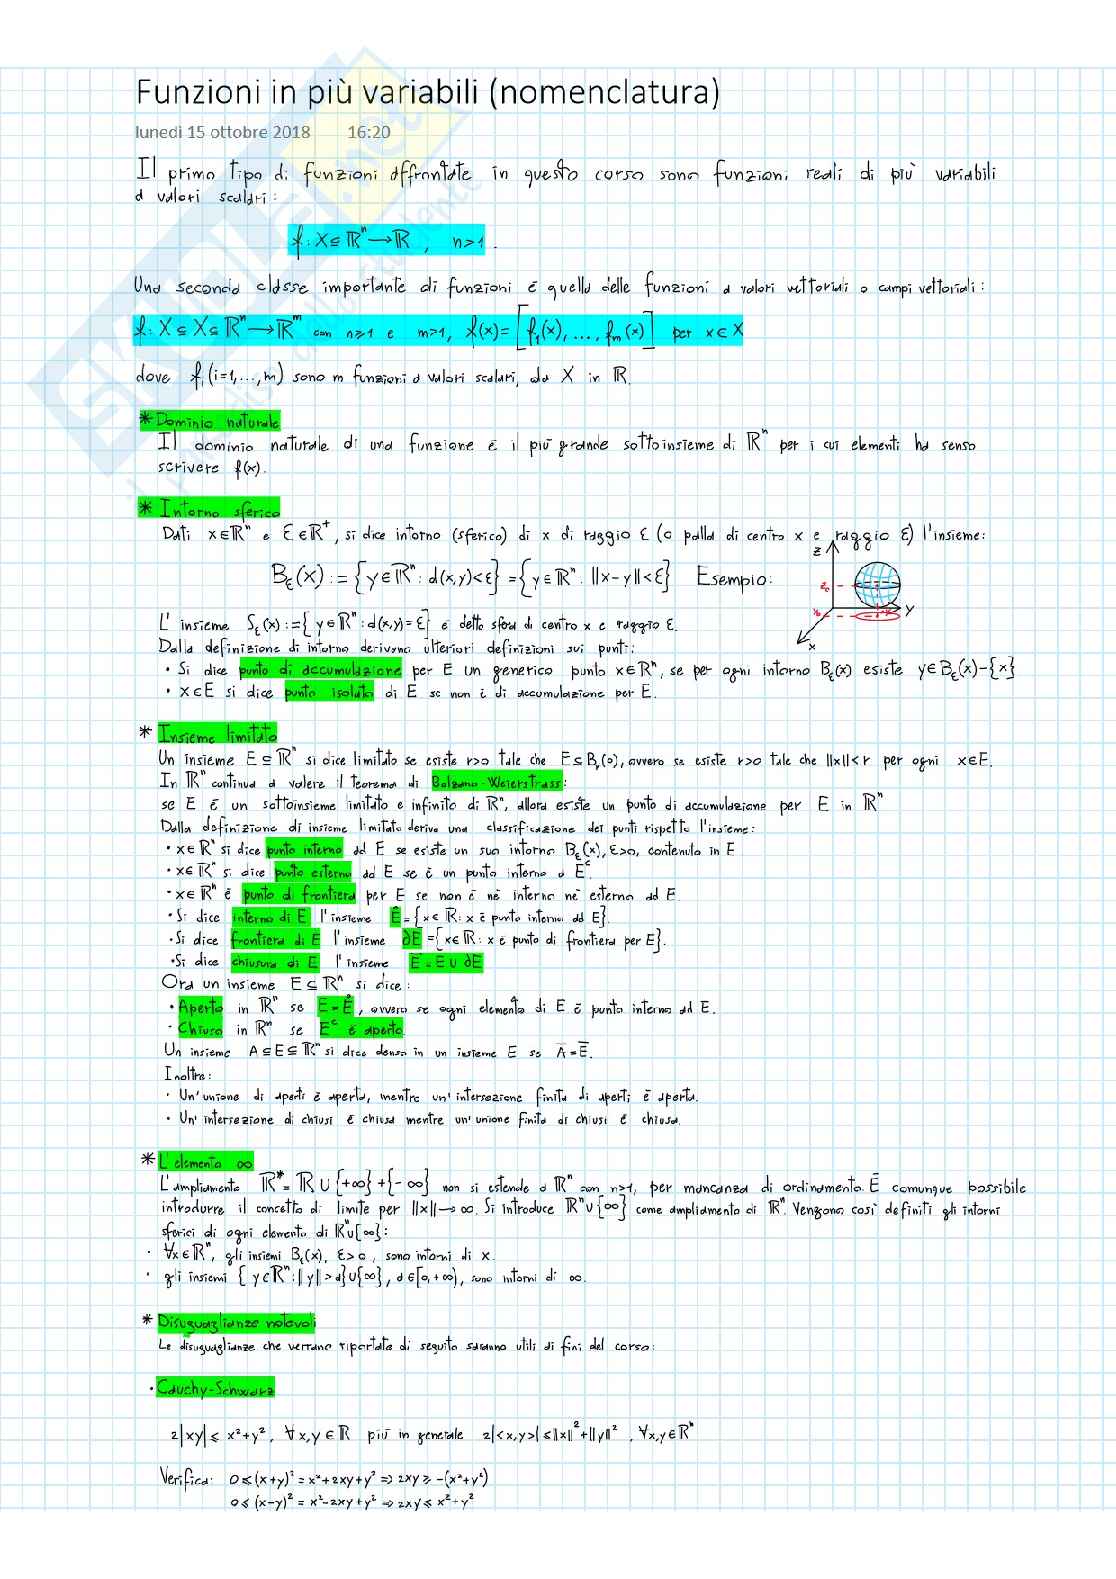 Funzioni in più variabili (nomenclatura)
lunedì 15 ottobre 2018 16:20
Il primo tipo di funzioni affrontate in questo corso sono funzioni reali di più variabili
a valori scalari:
f: X⊆ℝⁿ→ℝ , n>1 .
Una seconda classe importante di funzioni è quella delle funzioni a valori vettoriali o campi vettoriali:
f: X⊆X⊆ℝⁿ→ℝᵐ con n≥1 e m>1, f(x)=[f₁(x),...,fₘ(x)] per x∈X
dove fᵢ(i=1,...,m) sono m funzioni a valori scalari, da X in ℝ.
* Dominio naturale
Il dominio naturale di una funzione è il più grande sottoinsieme di ℝⁿ per i cui elementi ha senso
scrivere f(x).
* Intorno sferico
Dati x∈ℝⁿ e ε∈ℝ⁺, si dice intorno (sferico) di x di raggio ε (o palla di centro x e raggio ε) l'insieme:
B_ε(x):={y∈ℝⁿ: d(x,y)<ε}={y∈ℝⁿ: ||x-y||<ε} Esempio:
z
y
x
L'insieme S_ε(x):={y∈ℝⁿ: d(x,y)=ε} è detto sfera di centro x e raggio ε.
Dalla definizione di intorno derivano ulteriori definizioni sui punti:
• Si dice punto di accumulazione per E un generico punto x∈ℝⁿ, se per ogni intorno B_ε(x) esiste y∈B_ε(x)-{x}
• x∈E si dice punto isolato di E se non è di accumulazione per E.
* Insieme limitato
Un insieme E⊆ℝⁿ si dice limitato se esiste r>0 tale che E⊆Bᵣ(0), ovvero se esiste r>0 tale che ||x||<r per ogni x∈E.
In ℝⁿ continua a valere il teorema di Bolzano-Weierstrass:
se E è un sottoinsieme limitato e infinito di ℝⁿ, allora esiste un punto di accumulazione per E in ℝⁿ
Dalla definizione di insieme limitato deriva una classificazione dei punti rispetto l'insieme:
• x∈ℝⁿ si dice punto interno ad E se esiste un suo intorno B_ε(x), ε>0, contenuto in E
• x∈ℝⁿ si dice punto esterno ad E se è un punto interno a Eᶜ.
• x∈ℝⁿ è punto di frontiera per E se non è nè interno nè esterno ad E.
• Si dice interno di E l'insieme E̊={x∈ℝ: x è punto interno ad E}.
• Si dice frontiera di E l'insieme ∂E={x∈ℝ: x è punto di frontiera per E}.
• Si dice chiusura di E l'insieme E̅=E∪∂E
Ora un insieme E⊆ℝⁿ si dice:
• Aperto in ℝⁿ se E=E̊, ovvero se ogni elemento di E è punto interno ad E.
• Chiuso in ℝⁿ se Eᶜ è aperto
Un insieme A⊆E⊆ℝⁿ si dice denso in un insieme E se A̅=E̅.
Inoltre:
• Un'unione di aperti è aperta, mentre un'intersezione finita di aperti è aperta.
• Un'intersezione di chiusi è chiusa mentre un'unione finita di chiusi è chiusa.
* L'elemento ∞
L'ampliamento ℝ*=ℝ∪{+∞}+{-∞} non si estende a ℝⁿ con n>1, per mancanza di ordinamento. È comunque possibile
introdurre il concetto di limite per ||x||→∞. Si introduce ℝⁿ∪{∞} come ampliamento di ℝⁿ. Vengono così definiti gli intorni
sferici di ogni elemento di ℝⁿ∪{∞}:
• ∀x∈ℝⁿ, gli insiemi B_ε(x), ε>0, sono intorni di x.
• gli insiemi {y∈ℝⁿ:||y||>a}∪{∞}, a∈[0,+∞), sono intorni di ∞.
* Disuguaglianze notevoli
Le disuguaglianze che verrano riportate di seguito saranno utili di fini del corso:
• Cauchy-Schwarz
2|xy|≤x²+y², ∀x,y∈ℝ più in generale 2|<x,y>|≤||x||²+||y||², ∀x,y∈ℝⁿ
Verifica: 0≤(x+y)²=x²+2xy+y²⇒2xy≥-(x²+y²)
0≤(x-y)²=x²-2xy+y²⇒2xy≤x²+y²